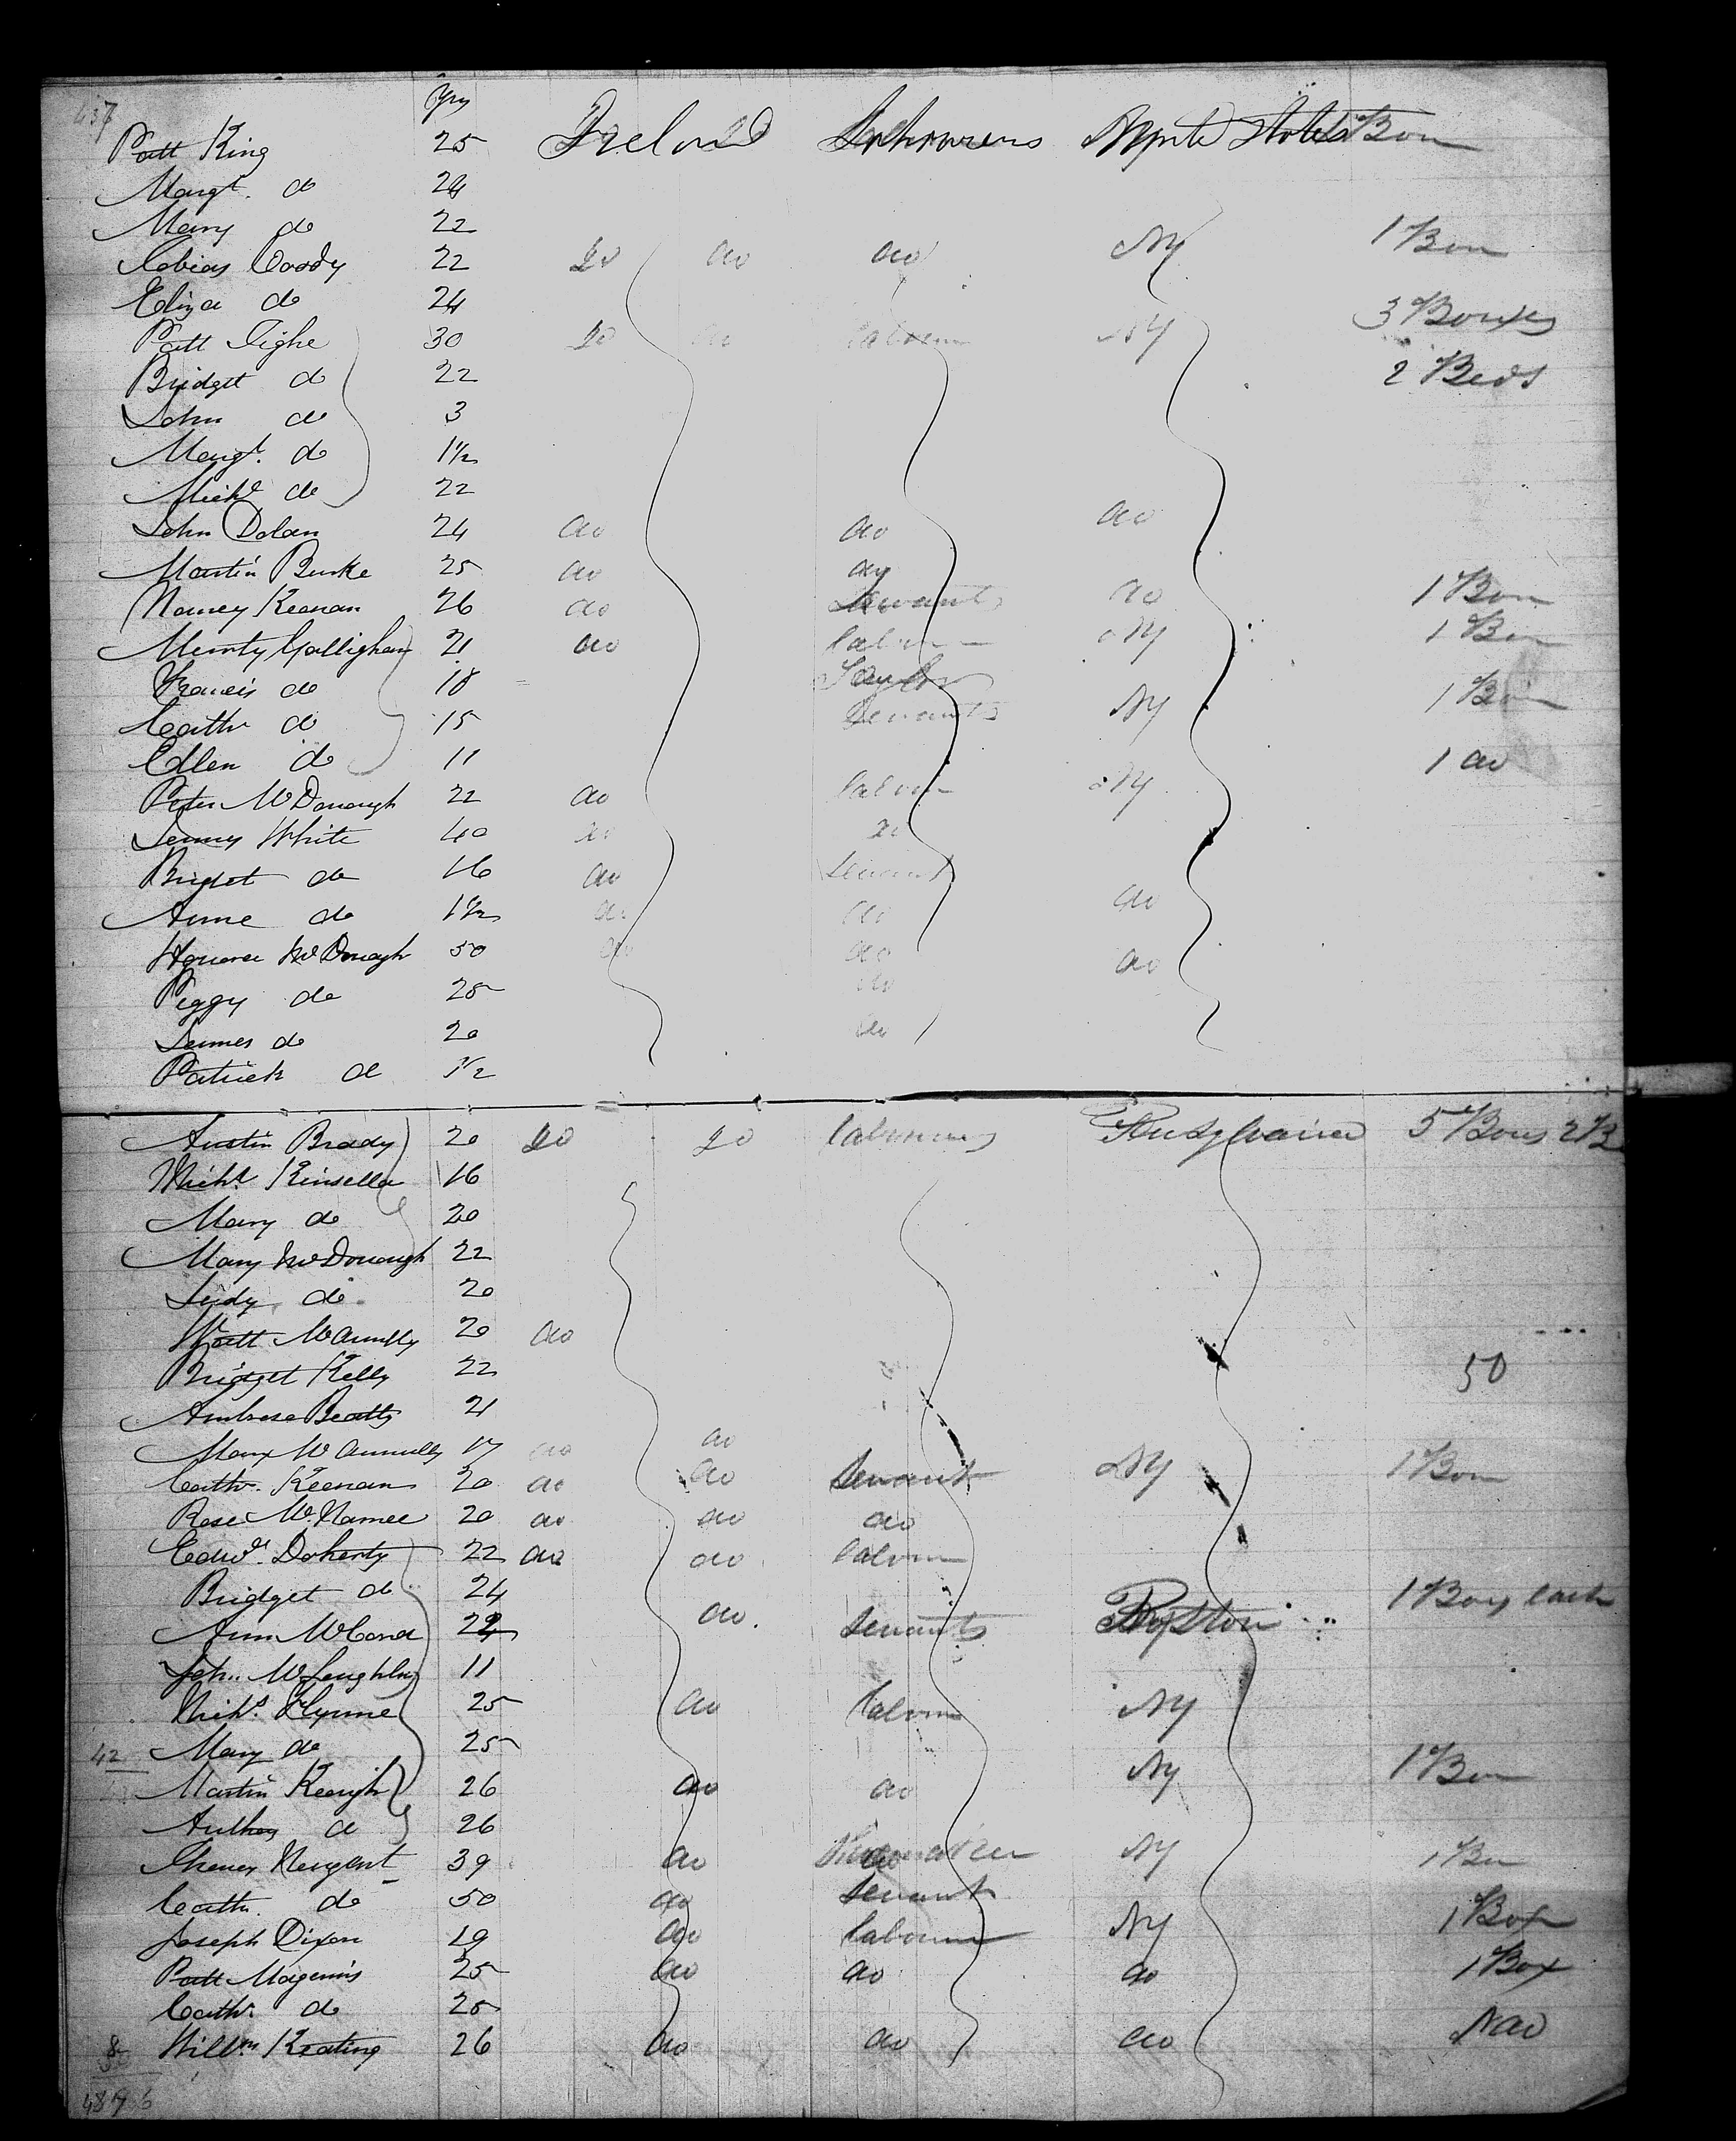 437 Yrs
Patt King 25 Ireland Labourers Unite States Box
Margt. do 24
Mary do 22 1 Box
Tobias Coady 22 Do do do NY
Eliza do 24 3 Boxes
Patt Tighe 30 Do do labour NY
Bridget do 22 2 Beds
John do 3
Margt. do 1½
Michl do 22
John Dolan 24 do do do
Martin Burke 25 do do
Nancy Keenan 26 do Servant do 1 Box
Murty Galligham 21 do labour NY 1 Box
Francis do 18 Taylor
Cathr do 15 Servants NY 1 Box
Ellen do 11 1 do
Peter McDonough 22 do labour NY
James White 40 do do
Bridget do 16 do Servant
Anne do 1½ do do do
Honora McDonagh 50 do do do
Peggy do 25 do
James do 20 do
Patrick do 1½
Austin Brady 20 Do Do labourers Pensylvaina 5 Boxs 2 B
Michl. Kinsella 16
Mary do 20
Mary McDonough 22
Judy do 20
Patt McAnully 20 do
Bridget Kelly 22 50
Ambrose Beatty 21
Mary McAnnully 17 do do
Cathr. Keenan 20 do do Servant NY 1 Box
Rose McNamee 20 do do do
Edwd. Doherty 22 do do labour
Bridget do 24 1 Box each
Ann McCona 22 do Servants
John McLoughlin 11
Michl. Flynne 25 do labour NY
42 Mary do 25
Martin Keough 26 do do NY 1 Box
Anthony do 26
Nugent 39 do do NY 1 Box
Cathr. do 50 do Servant
Joseph Dixon 19 do labour NY 1 Box
Patt Magennis 25 do do do 1 Box
Cathr. do 25
8 Willm Keating 26 do do do 1 do